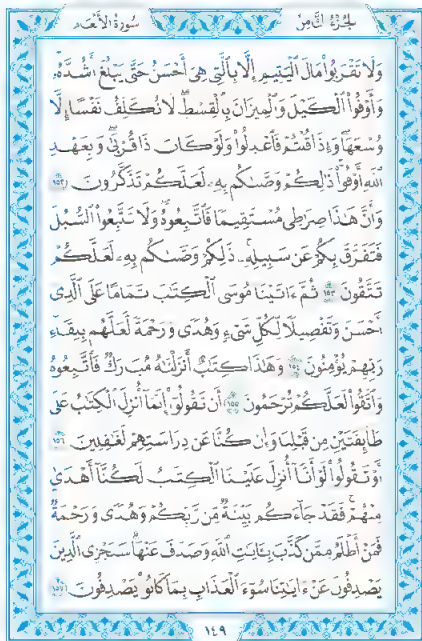 سُورَةُ الأَنْعَام
الجُزْءُ الثَّامِن
وَلَا تَقْرَبُوا۟ مَالَ ٱلْيَتِيمِ إِلَّا بِٱلَّتِى هِىَ أَحْسَنُ حَتَّىٰ يَبْلُغَ أَشُدَّهُۥ
وَأَوْفُوا۟ ٱلْكَيْلَ وَٱلْمِيزَانَ بِٱلْقِسْطِ لَا نُكَلِّفُ نَفْسًا إِلَّا
وُسْعَهَا وَإِذَا قُلْتُمْ فَٱعْدِلُوا۟ وَلَوْ كَانَ ذَا قُرْبَىٰ وَبِعَهْدِ
ٱللَّهِ أَوْفُوا۟ ذَٰلِكُمْ وَصَّىٰكُم بِهِۦ لَعَلَّكُمْ تَذَكَّرُونَ ١٥٢
وَأَنَّ هَٰذَا صِرَٰطِى مُسْتَقِيمًا فَٱتَّبِعُوهُ وَلَا تَتَّبِعُوا۟ ٱلسُّبُلَ
فَتَفَرَّقَ بِكُمْ عَن سَبِيلِهِۦ ذَٰلِكُمْ وَصَّىٰكُم بِهِۦ لَعَلَّكُمْ
تَتَّقُونَ ١٥٣ ثُمَّ ءَاتَيْنَا مُوسَى ٱلْكِتَٰبَ تَمَامًا عَلَى ٱلَّذِى
أَحْسَنَ وَتَفْصِيلًا لِّكُلِّ شَىْءٍ وَهُدًى وَرَحْمَةً لَّعَلَّهُم بِلِقَآءِ
رَبِّهِمْ يُؤْمِنُونَ ١٥٤ وَهَٰذَا كِتَٰبٌ أَنزَلْنَٰهُ مُبَارَكٌ فَٱتَّبِعُوهُ
وَٱتَّقُوا۟ لَعَلَّكُمْ تُرْحَمُونَ ١٥٥ أَن تَقُولُوٓا۟ إِنَّمَآ أُنزِلَ ٱلْكِتَٰبُ عَلَىٰ
طَآئِفَتَيْنِ مِن قَبْلِنَا وَإِن كُنَّا عَن دِرَاسَتِهِمْ لَغَٰفِلِينَ ١٥٦
أَوْ تَقُولُوا۟ لَوْ أَنَّآ أُنزِلَ عَلَيْنَا ٱلْكِتَٰبُ لَكُنَّآ أَهْدَىٰ
مِنْهُمْ فَقَدْ جَآءَكُم بَيِّنَةٌ مِّن رَّبِّكُمْ وَهُدًى وَرَحْمَةٌ
فَمَنْ أَظْلَمُ مِمَّن كَذَّبَ بِـَٔايَٰتِ ٱللَّهِ وَصَدَفَ عَنْهَا سَنَجْزِى ٱلَّذِينَ
يَصْدِفُونَ عَنْ ءَايَٰتِنَا سُوٓءَ ٱلْعَذَابِ بِمَا كَانُوا۟ يَصْدِفُونَ ١٥٧
١٤٩